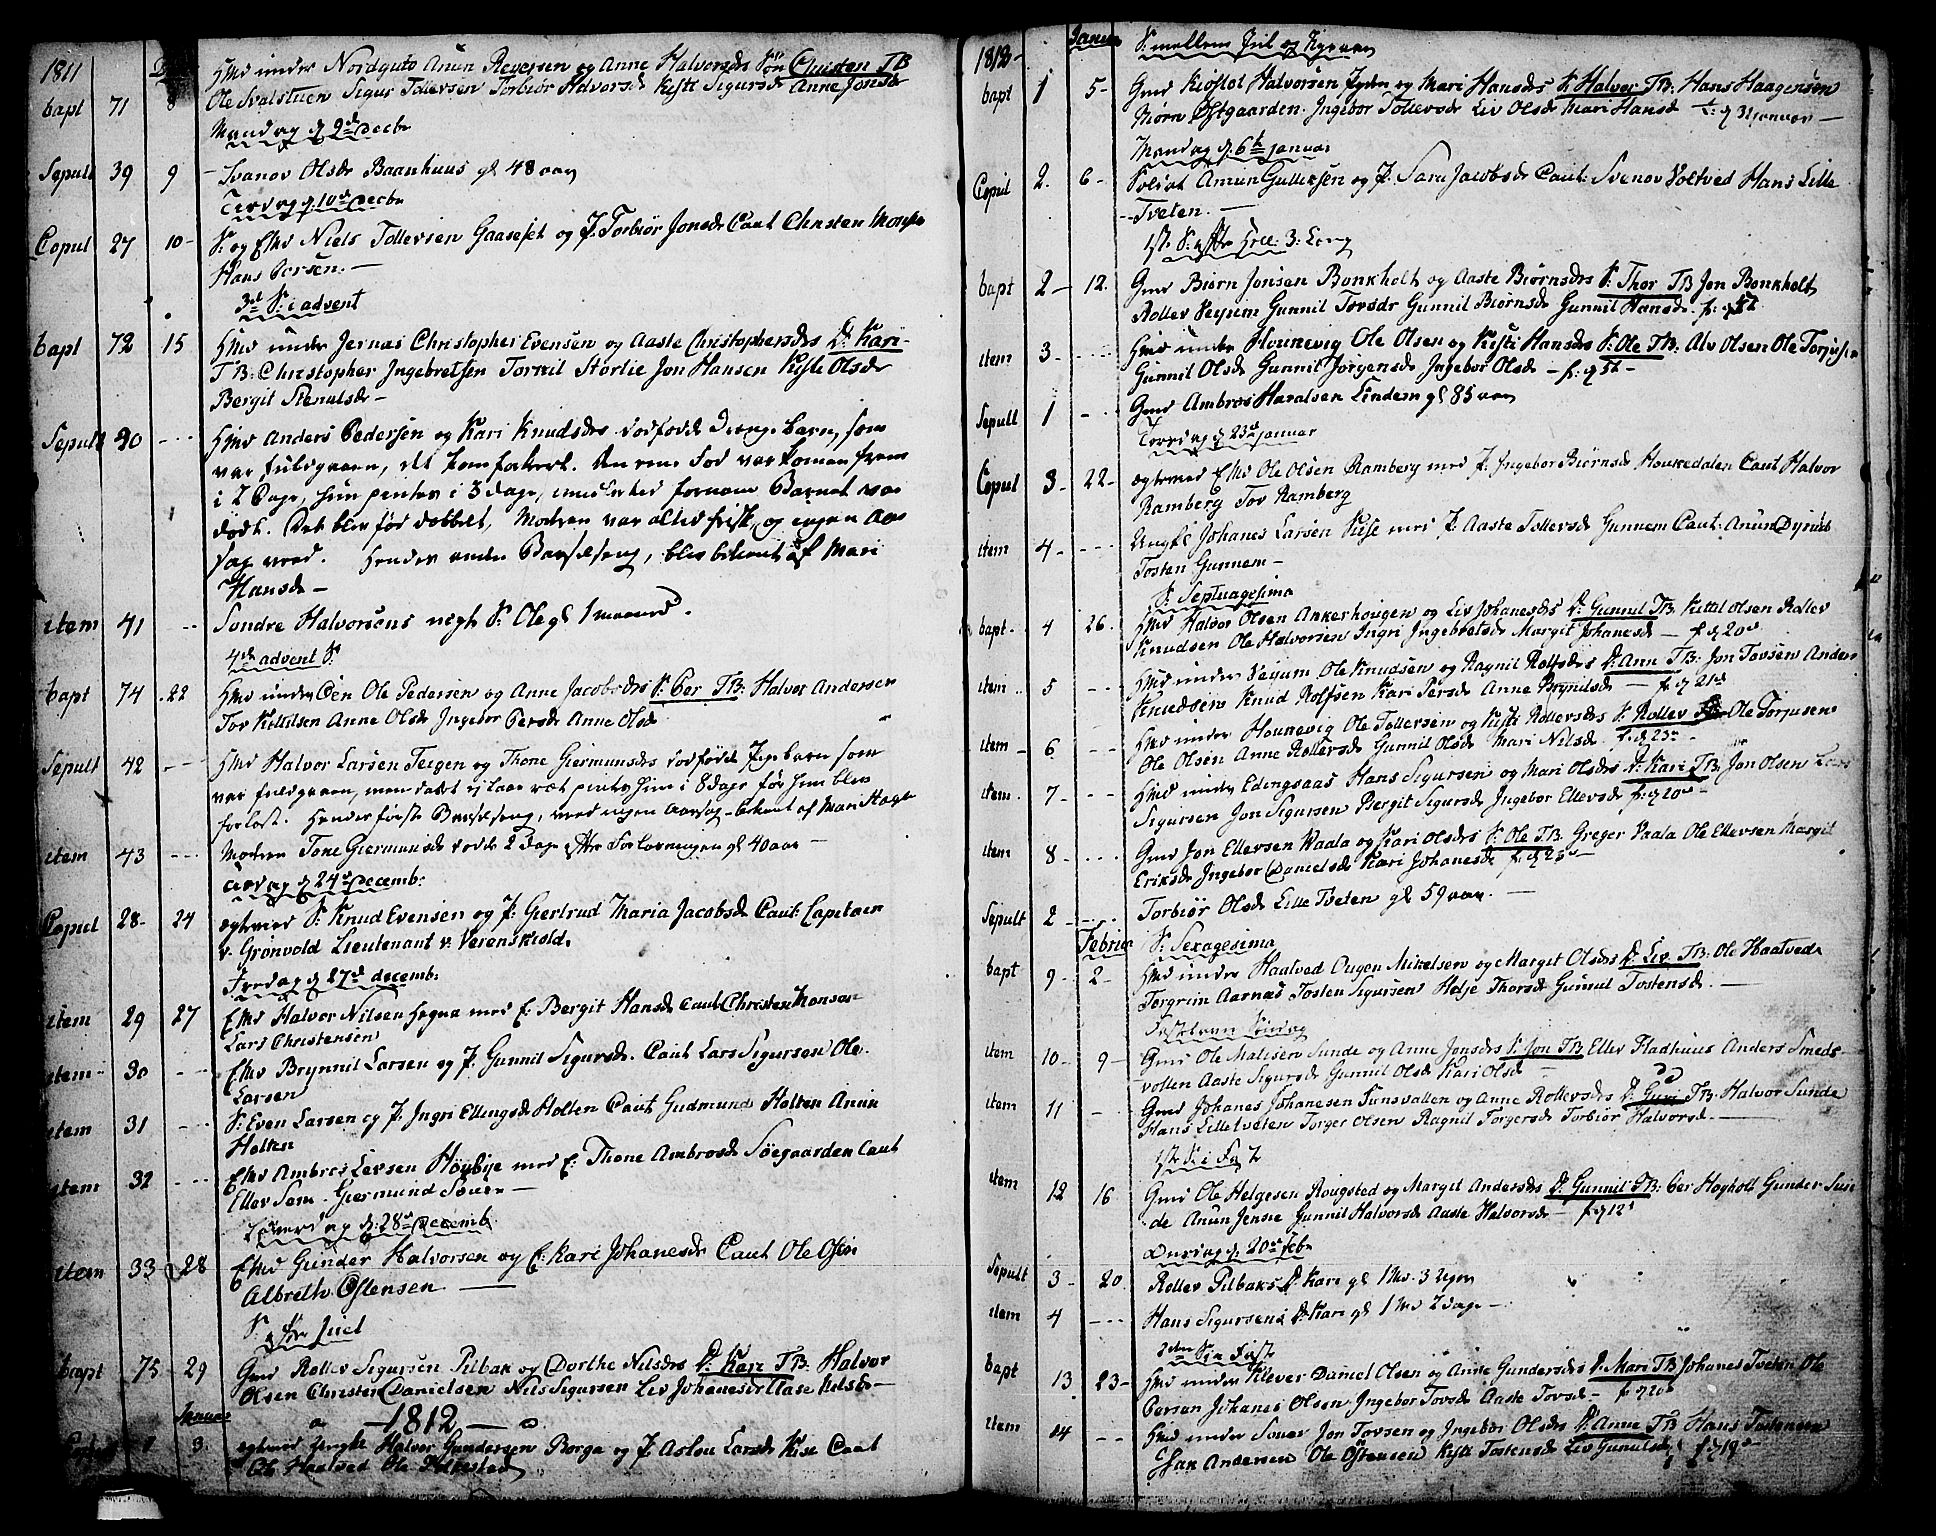 1811
bapt 71 8 Hmd under Nordgutu Anun Reyersen og Anne Halvorsdr Søn Christen TB
Ole Svalstuen Sigur Tollefsen Torbiør Halvorsdr Kisti Sigursdr Anne Jonsdr
Mandag d 9de Decbr
Sepult 39 9 Svanov Olsdr Baanhuus gl 48 aar
Tirsdag d 10de Decbr
Copul 27 10 S. og Ekmd Niels Tollevsen Gaaseset og P. Torbiør Jonsdr Caut Christen
Hans Persen.
3de S. i advent
bapt 72 15 Hmd under Jernæs Christopher Evensen og Aaste Christophersdr D: Kari
TB: Christopher Ingebretsen Tormil Storlie Jon Hansen Kisti Olsdr
Bergit Stenulsdr
Sepult 40 Hmd Anders Pedersen og Kari Knudsdrs dødfødde Drenge barn, som
var fuldgaaen, det kom forkert. Den eene Fod var komen frem
i 2 Dage, hun pintes i 3 dage, imidlertid fornam Barnet var
dødt. Det blev før døbbet, Modren var altid frisk, og ingen Aar
sag vred. Hendes anden Barselseng, blev bekent af Mari
Hansdr
item 41 Sondre Halvorsens uegte S. Ole gl 1 maaned.
4de advent S.
bapt 74 22 Hmd under Øen Ole Pedersen og Anne Jacobsdrs S. Per TB: Halvor Andersen
Tov Kittilsen Anne Olsdr Ingebor Persdr Anne Olsdr
Sepult 42 Hmd Halvor Larsen Teigen og Thone Giermunsdrs dødfødde Pigebarn som
var fuldgaaen, men faldt ej laae ræt pintes hun i 8 dage før hun blev
forløst. Hendes første Barselseng, ved ingen aarsag - bekent af Mari
item 43 Modren Tone Giermunsdr døde 2 dage efter Forløsningen gl 40 aar
Tirsdag d 24de Decemb:
Copul 28 24 egteviet S. Knud Evensen og P. Giertrud Maria Jacobsdr Caut: Capitain
v. Grønvold Lieutenant v. Verenskiold.
Fredag d 27de decemb:
item 29 27 Ekmd Halvor Nilsen Hegna med E. Bergit Hansdr Caut Christen Monsen
Lars Christensen
item 30 Ekmd Brynnil Larsen og P. Gunnil Sigursdr. Caut Lars Sigursen Ole
Larsen
item 31 S. Even Larsen og P. Ingri Ellingsdr Holten Caut Gudmund Holten Anun
Holten
item 32 Ekmd Ambros Levsen Høybye med E. Thone Ambrosdr Søegaarden Caut
Ellev Sem. Giermund Søuer
Løverdag d: 28de Decemb
item 33 28 Ekmd Gunder Halvorsen og E. Kari Johanesdr Caut Ole Østen
Albreth Østensen
S. før Juel
bapt 75 29 Gmd Rollev Sigursen Pilbak og Dorthe Nilsdrs D: Kari TB: Halvor
Olsen Christen Danielsen Nils Sigursen Liv Johanesdr Aase Nilsdr
Januar 1812
1 3 egteviet Ungkl Halvor Gundersen Borga og P. Aslou Larsdr Kise Caut
Ole Haatved Ole
1812 Januar S. mellem Jul og Nytaar
bapt 1 5 Gmd Kiøstol Halvorsen og Mari Hansdrs S. Halvor TB: Hans Haagensen
Biørn Østgaarden. Ingebor Tollevsdr Liv Olsdr Mari Hansdr f: d 3 Januar
Mandag d. 6te Januar
Copul 2 6 Soldat Amun Gullicsen og P. Sara Jacobsdr Caut: Svenov Voltved Hans Lille
Tveten.
1ste S. efter H 3: Kong
bapt 2 12 Gmd Biørn Jonsen Bonkholt og Aaste Biørnsdrs S. Thor TB Jon Bonkholt
Rollev Veyum Gunnil Tovsdr Gunnil Biørnsdr Gunnil Hansdr. f: d 5te
item 3 Hmd under Hounevig Ole Olsen og Kisti Hansdrs S. Ole TB: Alv Olsen Ole Torjusen
Gunnil Olsdr Gunnil Jørgensdr Ingebor Olsdr f: d 5te
Sepult 1 Gmd Ambros Haralsen Lindem gl 85 aar
Torsdag d 23de januar
Copul 3 22 egteviet Ekmd Ole Olsen Ramberg med P. Ingebor Biørnsdr Houkedalen Caut Halvor
Ramberg Tov Ramberg
item 4 Ungkl Johanes Larsen Kise med P. Aaste Tollevsdr Gunnem Caut: Anun
Tosten Gunnem
S. Septuagesima
bapt 4 26 Hmd Halvor Olsen Ankerhougen og Liv Johanesdrs D: Gunnil TB: Kittil Olsen Rollev
Knudsen Ole Halvorsen Ingri Ingebretsdr Margit Johanesdr f d 20de
item 5 Hmd under Veyum Ole Knudsen og Ragnil Rolfsdrs D. Ann TB: Jon Tovsen Anders
Knudsen Knud Rolfsen Kari Persdr Anne Brynilsdr f. d 21de
item 6 Hmd under Hounevig Ole Tollevsen og Kisti Rollevsdrs S. Rollev TB Ole Torjusen
Ole Olsen Anne Rollevsdr Gunnil Olsdr Mari Nilsdr. f. d 23de
item 7 Hmd under Edingsaas Hans Sigursen og Mari Olsdrs D: Kari TB. Jon Olsen Lars
Sigursen Jon Sigursen Bergit Sigursdr Ingebor Ellevsdr f. d 20de
item 8 Gmd Jon Ellevsen Vaala og Kari Olsdrs S. Ole TB: Greger Vaala Ole Ellevsen Margit
Eriksdr Ingebor Danielsdr Kari Johanesdr f. d 25de
Sepult 2 Torbiør Olsdr Lille Tveten gl 59 aar.
Februar S. Sexagesima
bapt 9 2 Hmd under Haatved Ougen Mikelsen og Margit Olsdrs D: Liv TB: Ole Haatved
Torgrim Aarnæs Tosten Sigursen Helje Thorsdr Gunnul Tostensdr.
Fastelavn Søndag
item 10 9 Gmd Ole Matisen Sunde og Anne Jonsdrs S. Jon TB Ellev Fladhuus Anders Smeds
vollen Aaste Sigursdr Gunnil Olsdr Kari Olsdr
item 11 Gmd Johanes Johanesen Tunsvallen og Anne Rollevsdrs D: Guri TB: Halvor Sunde
Hans Lilletveten Torger Olsen Ragnil Torgersdr Torbiør Halvorsdr.
1ste S. i Fast
item 12 16 Gmd Ole Helgesen Rougsted og Margit Andersdrs D. Gunnil TB: Per Hogholt Gunder Sun
de Anun Jensse Gunnil Halvorsdr Aaste Halvorsdr f d 12te
Onsdag d. 20de Febr
Sepult 3 20 Rollev Pilbaks D. Kari gl 1 Md. 3 uger
item 4 Hans Sigursens D. Kari gl 1 Md 2 dage
2den S i Fast
bapt 13 23 Hmd under Klever Daniel Olsen og Anne Gundersdrs D. Mari TB Johanes Tveten Ole
Persen Johanes Olsen Ingebor Tovsdr Aaste Tovsdr f d 20de
item 14 Hmd under Souer Jon Tovsen og Ingebor Olsdrs D: Anne TB Hans Tostensen
Isak Andersen Ole Østensen Kisti Tostensdr Liv Gunulsdr f d 19de